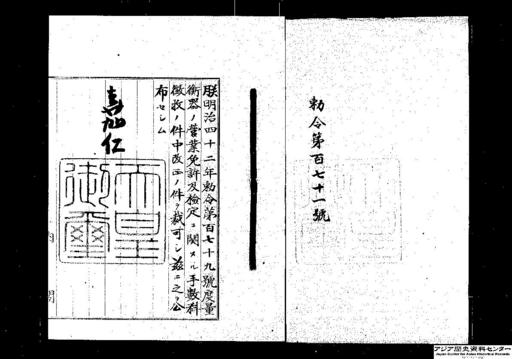 勅令第百七十一號
朕明治四十二年勅令第百七十九號度量
衡器ノ營業免許及檢定ニ關スル手數料
徵收ノ件中改正ノ件ヲ裁可シ玆ニ之ヲ公
布セシム
嘉仁
天皇
御璽
内閣
アジア歴史資料センター
Japan Center for Asian Historical Records